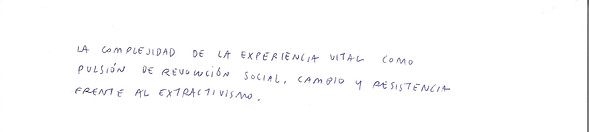 LA COMPLEJIDAD DE LA EXPERIENCIA VITAL COMO
PULSIÓN DE REVOLUCIÓN SOCIAL, CAMBIO Y RESISTENCIA
FRENTE AL EXTRACTIVISMO.